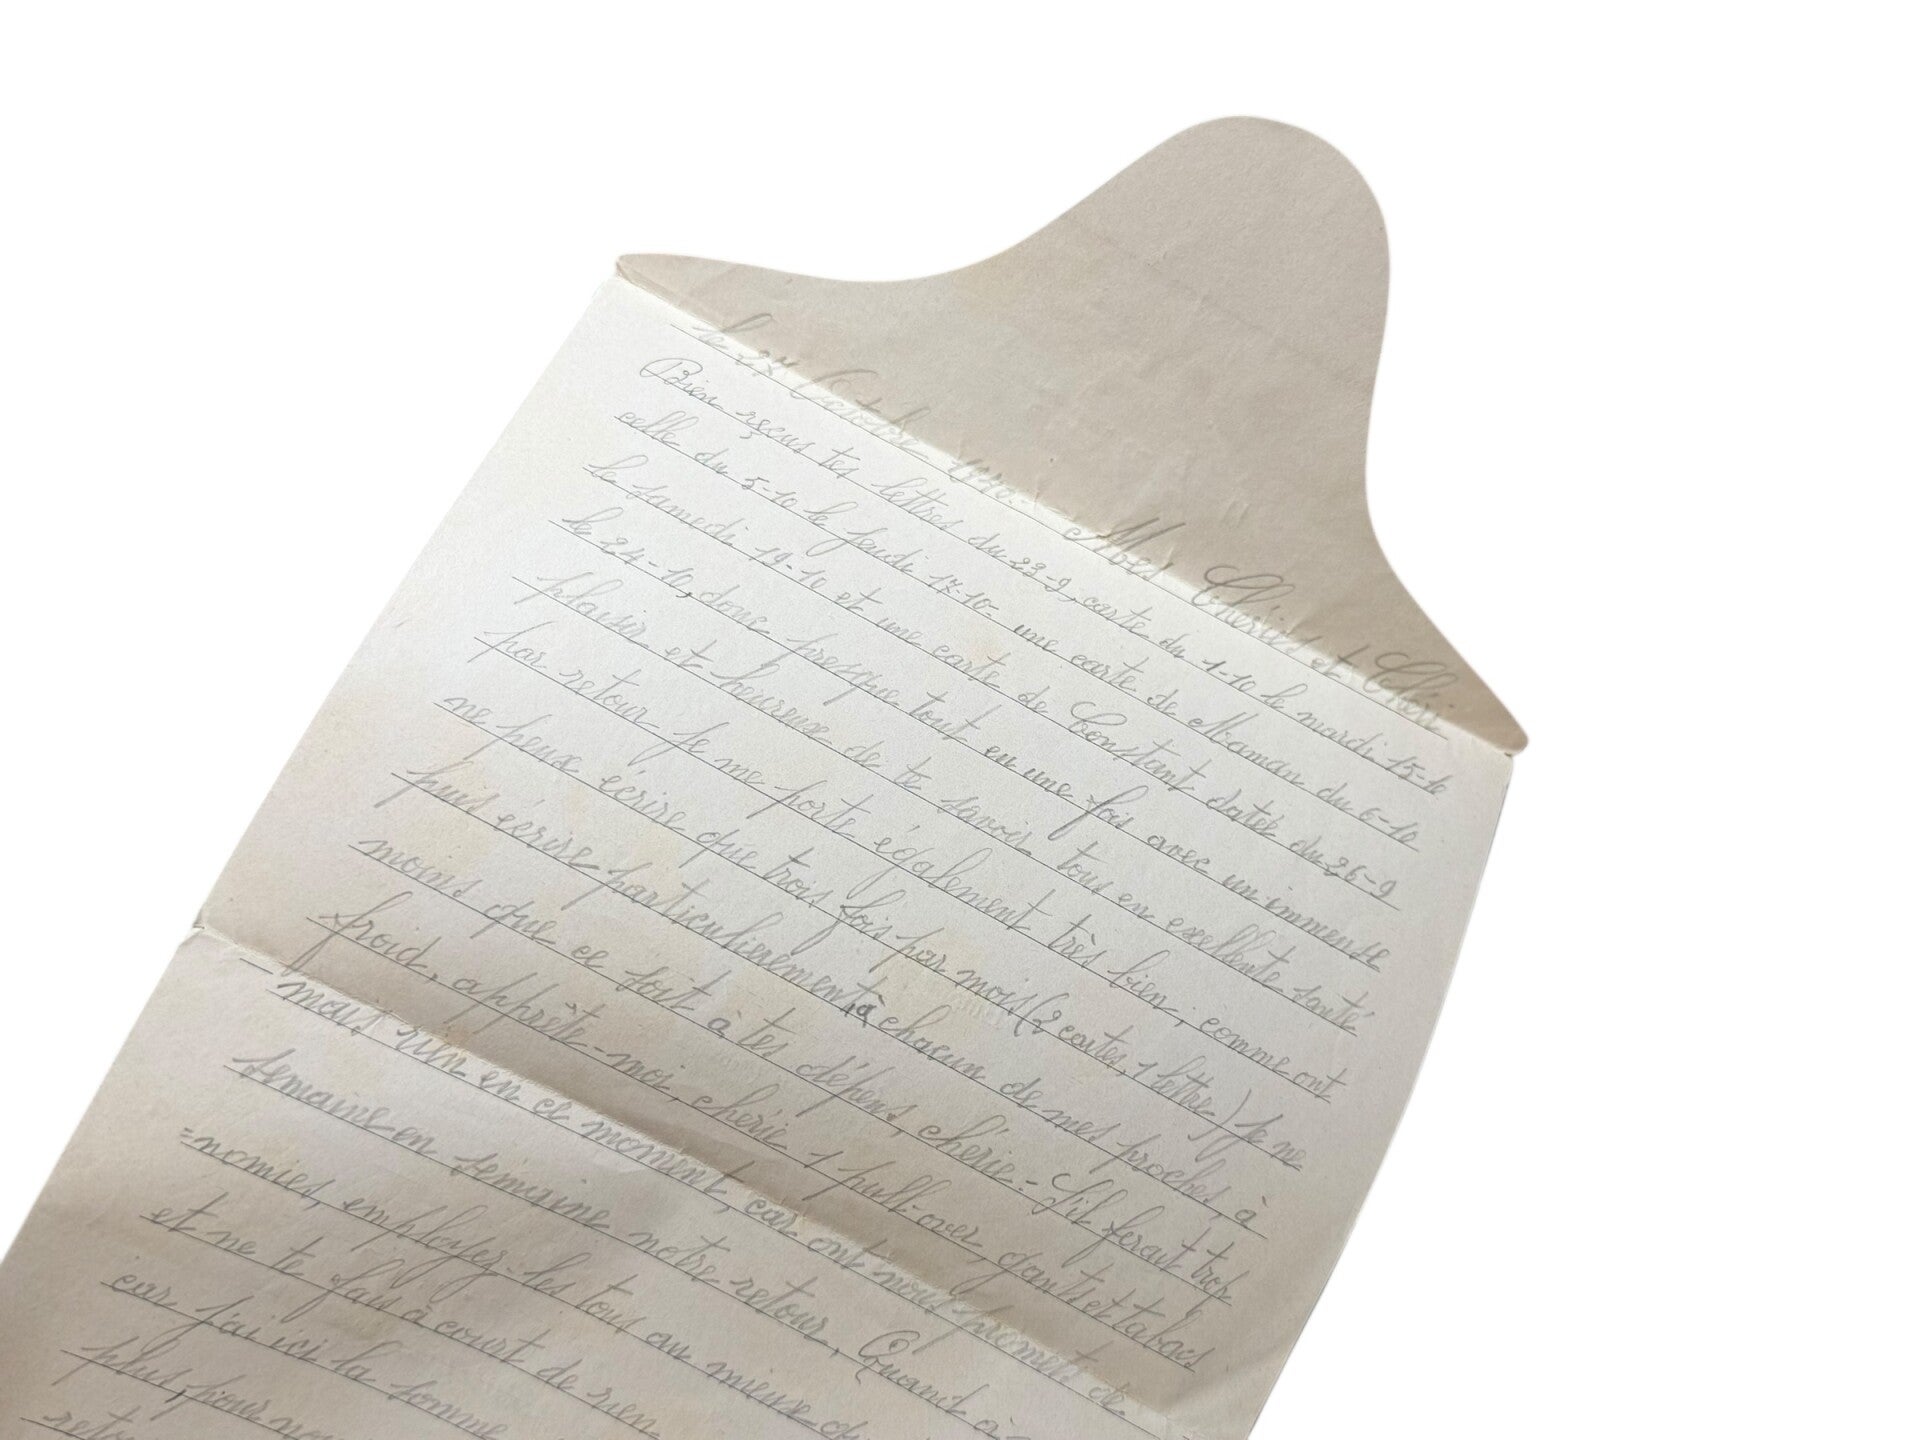 le 27 Octobre 1940.- Mes Chéries et Chéri
Bien reçus tes lettres du 23-9, carte du 1-10 le mardi 15-10
celle du 5-10 le jeudi 17-10- une carte de Maman du 6-10
le samedi 19-10 et une carte de Constant datée du 26-9
le 24-10, donc presque tout en une fois avec un immense
plaisir et heureux de te savoir tous en exellente santé
par retour je me porte également très bien, comme ont
ne peux écrire que trois fois par mois (2 cartes, 1 lettre) je ne
puis écrire particulièrement à chacun de mes proches, à
moins que ce soit à tes dépens, chérie.- S'il ferait trop
froid, apprête-moi, chérie 1 pull-over, gants et tabac
- mais rien en ce moment, car ont nous promet de
semaine en semaine notre retour, Quant à
=nomies, employez-les tous au mieux
et ne te fais à court de rien
car j'ai ici la somme
plus, pour